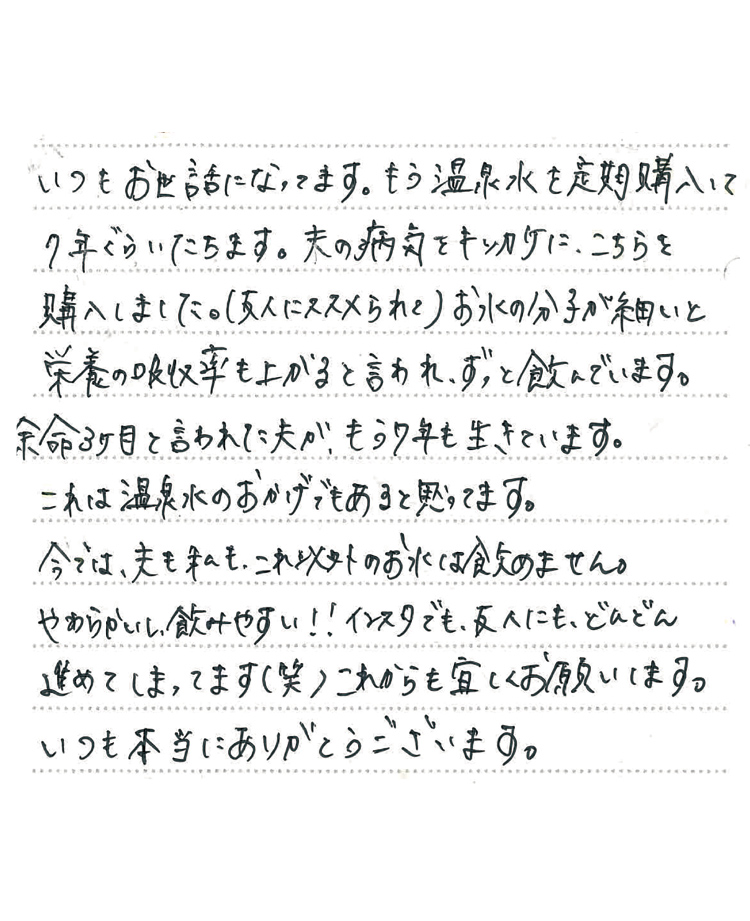 いつもお世話になってます。もう温泉水を定期購入して
7年ぐらいたちます。夫の病気をキッカケに、こちらを
購入しました。(友人にススメられて)お水の分子が細いと
栄養の吸収率も上がると言われ、ずっと飲んでいます。
余命3ケ月と言われた夫が、もう7年も生きています。
これは温泉水のおかげでもあると思ってます。
今では、夫も私も、これ以外のお水は飲めません。
やわらかいし、飲みやすい!!インスタでも、友人にも、どんどん
進めてしまってます(笑)これからも宜しくお願いします。
いつも本当にありがとうございます。